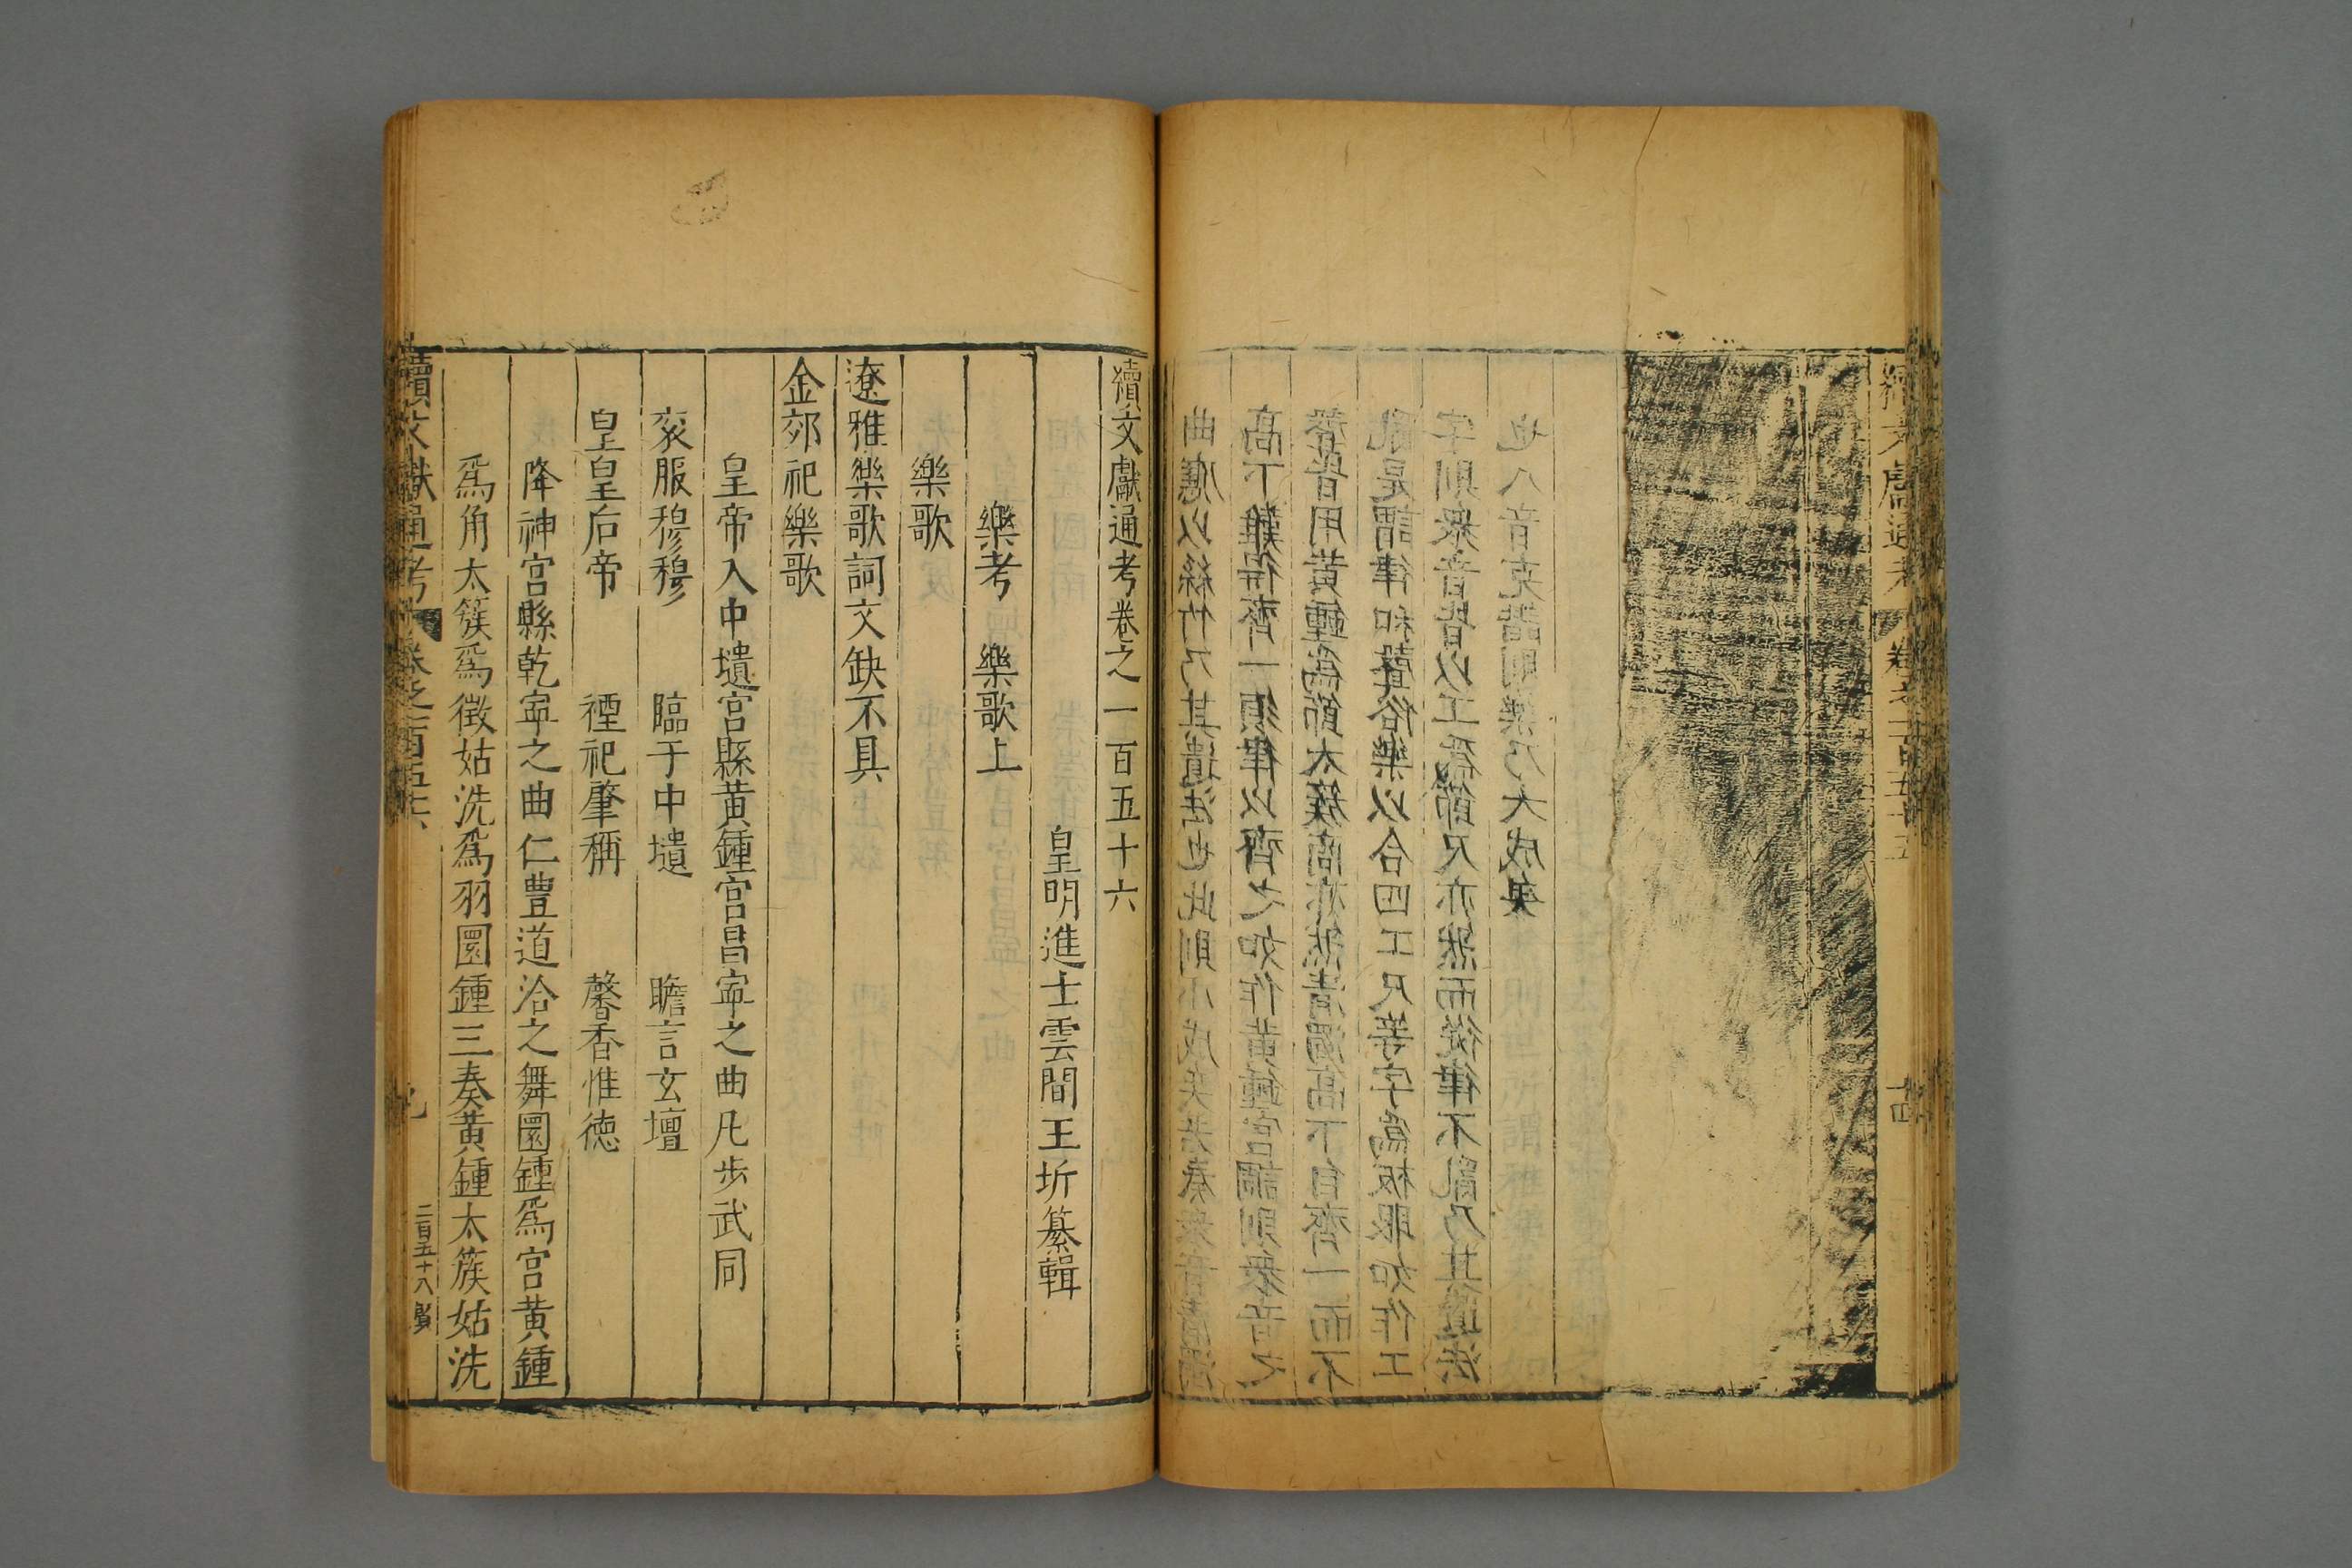 續文獻通考
卷之一百五十五
十四
曲應以絲竹乃其遺法也此則小成矣若奏衆音清濁
高下難得齊一須律以齊之如作黃鍾宮調則衆音之
聲皆用黃鍾爲節太簇商亦然清濁高下自齊一而不
亂是謂律和聲俗樂以合四工尺等字爲板眼如作工
字則衆音皆以工爲節尺亦然而從律不亂乃其遺法
也八音克諧則樂乃大成矣
續文獻通考卷之一百五十六
皇明進士雲間王圻纂輯
樂考　樂歌上
樂歌
遼雅樂歌詞文缺不具
金郊祀樂歌
皇帝入中壝宮縣黃鍾宮昌寧之曲凡步武同
衮服穆穆　臨于中壝　瞻言玄壇
皇皇后帝　禋祀肇稱　馨香惟德
降神宮縣乾寧之曲仁豊道洽之舞圜鍾爲宮黃鍾
爲角太簇爲徵姑洗爲羽圜鍾三奏黃鍾太簇姑洗
續文獻通考
卷之一百五十六
二百五十八